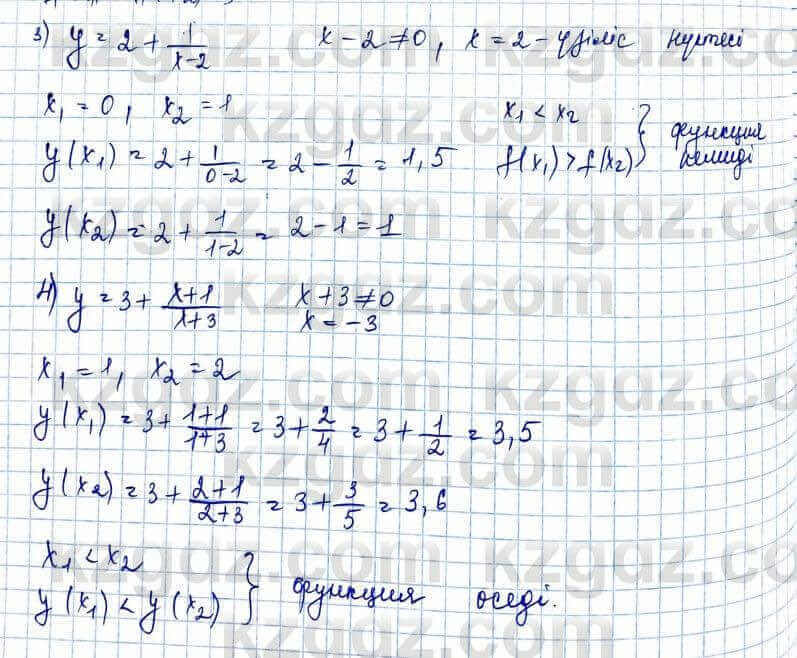 3) y = 2 + 1/(x-2) x - 2 ≠ 0, x = 2 - үзіліс нүктесі
x₁ = 0, x₂ = 1 x₁ < x₂
y(x₁) = 2 + 1/(0-2) = 2 - 1/2 = 1,5 f(x₁) > f(x₂) } функция кемиді
y(x₂) = 2 + 1/(1-2) = 2 - 1 = 1
4) y = 3 + (x+1)/(x+3) x + 3 ≠ 0
x = -3
x₁ = 1, x₂ = 2
y(x₁) = 3 + (1+1)/(1+3) = 3 + 2/4 = 3 + 1/2 = 3,5
y(x₂) = 3 + (2+1)/(2+3) = 3 + 3/5 = 3,6
x₁ < x₂
y(x₁) < y(x₂) } функция өседі.
kzgdz.com